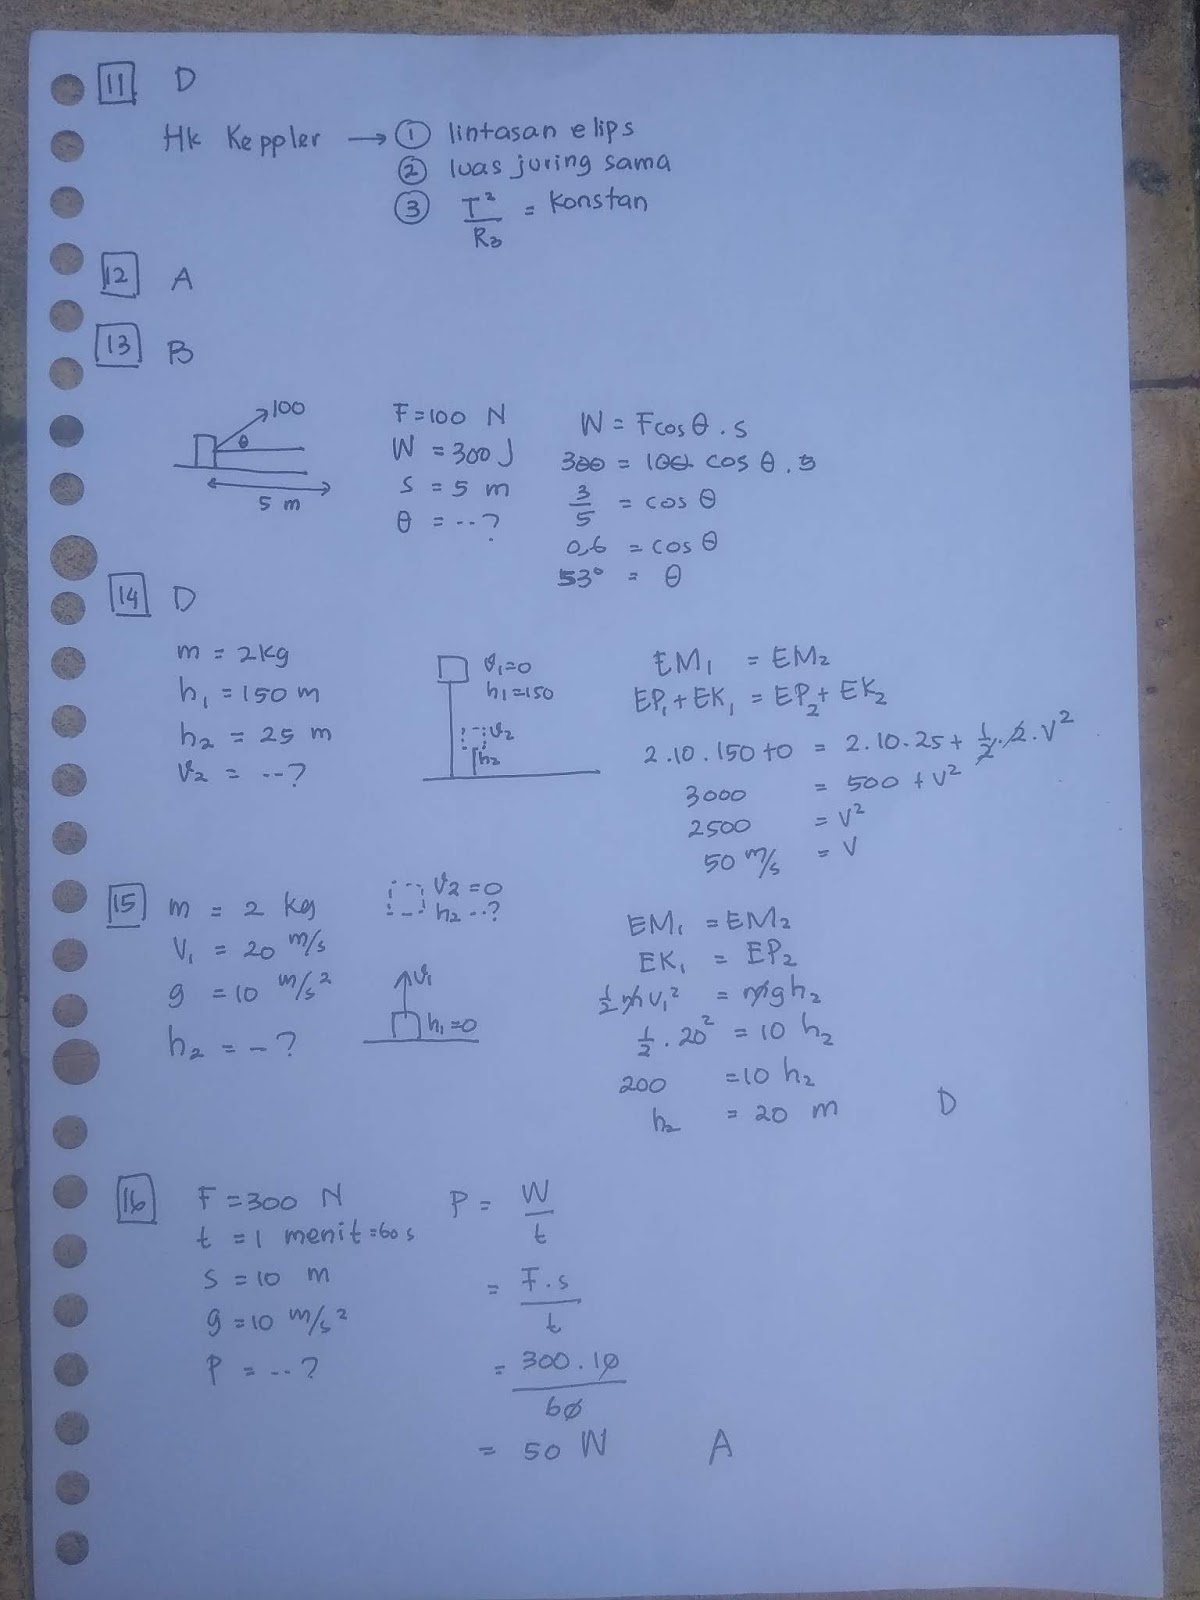 11 D
Hk Keppler → ① lintasan elips
② luas juring sama
③ T²/R3 = Konstan
12 A
13 B
100
θ
5 m
F = 100 N
W = 300 J
s = 5 m
θ = --?
W = F cos θ . s
300 = 100 cos θ . 5
3/5 = cos θ
0,6 = cos θ
53° = θ
14 D
m = 2 kg
h₁ = 150 m
h₂ = 25 m
v₂ = --?
v₁=0
h₁=150
v₂
h₂
EM₁ = EM₂
EP₁ + EK₁ = EP₂ + EK₂
2.10.150 + 0 = 2.10.25 + 1/2.2.V²
3000 = 500 + V²
2500 = V²
50 m/s = V
15 m = 2 kg
V₁ = 20 m/s
g = 10 m/s²
h₂ = - ?
V₂ = 0
h₂ --?
v₁
h₁=0
EM₁ = EM₂
EK₁ = EP₂
1/2 m v₁² = m g h₂
1/2 . 20² = 10 h₂
200 = 10 h₂
h₂ = 20 m D
16 F = 300 N
t = 1 menit = 60 s
s = 10 m
g = 10 m/s²
P = --?
P = W/t
= F.s/t
= 300.10/60
= 50 W A